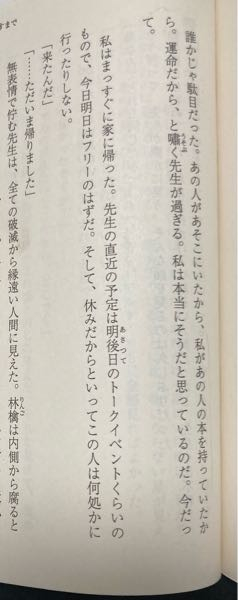 誰かじゃ駄目だった。あの人があそこにいたから、私があの人の本を持っていたか
ら。運命だから、と嘯く先生が過ぎる。私は本当にそうだと思っているのだ。今だっ
て。
私はまっすぐに家に帰った。先生の直近の予定は明後日のトークイベントくらいの
もので、今日明日はフリーのはずだ。そして、休みだからといってこの人は何処かに
行ったりしない。
「来たんだ」
「……ただいま帰りました」
無表情で佇む先生は、全ての破滅から縁遠い人間に見えた。林檎は内側から腐ると
すまで